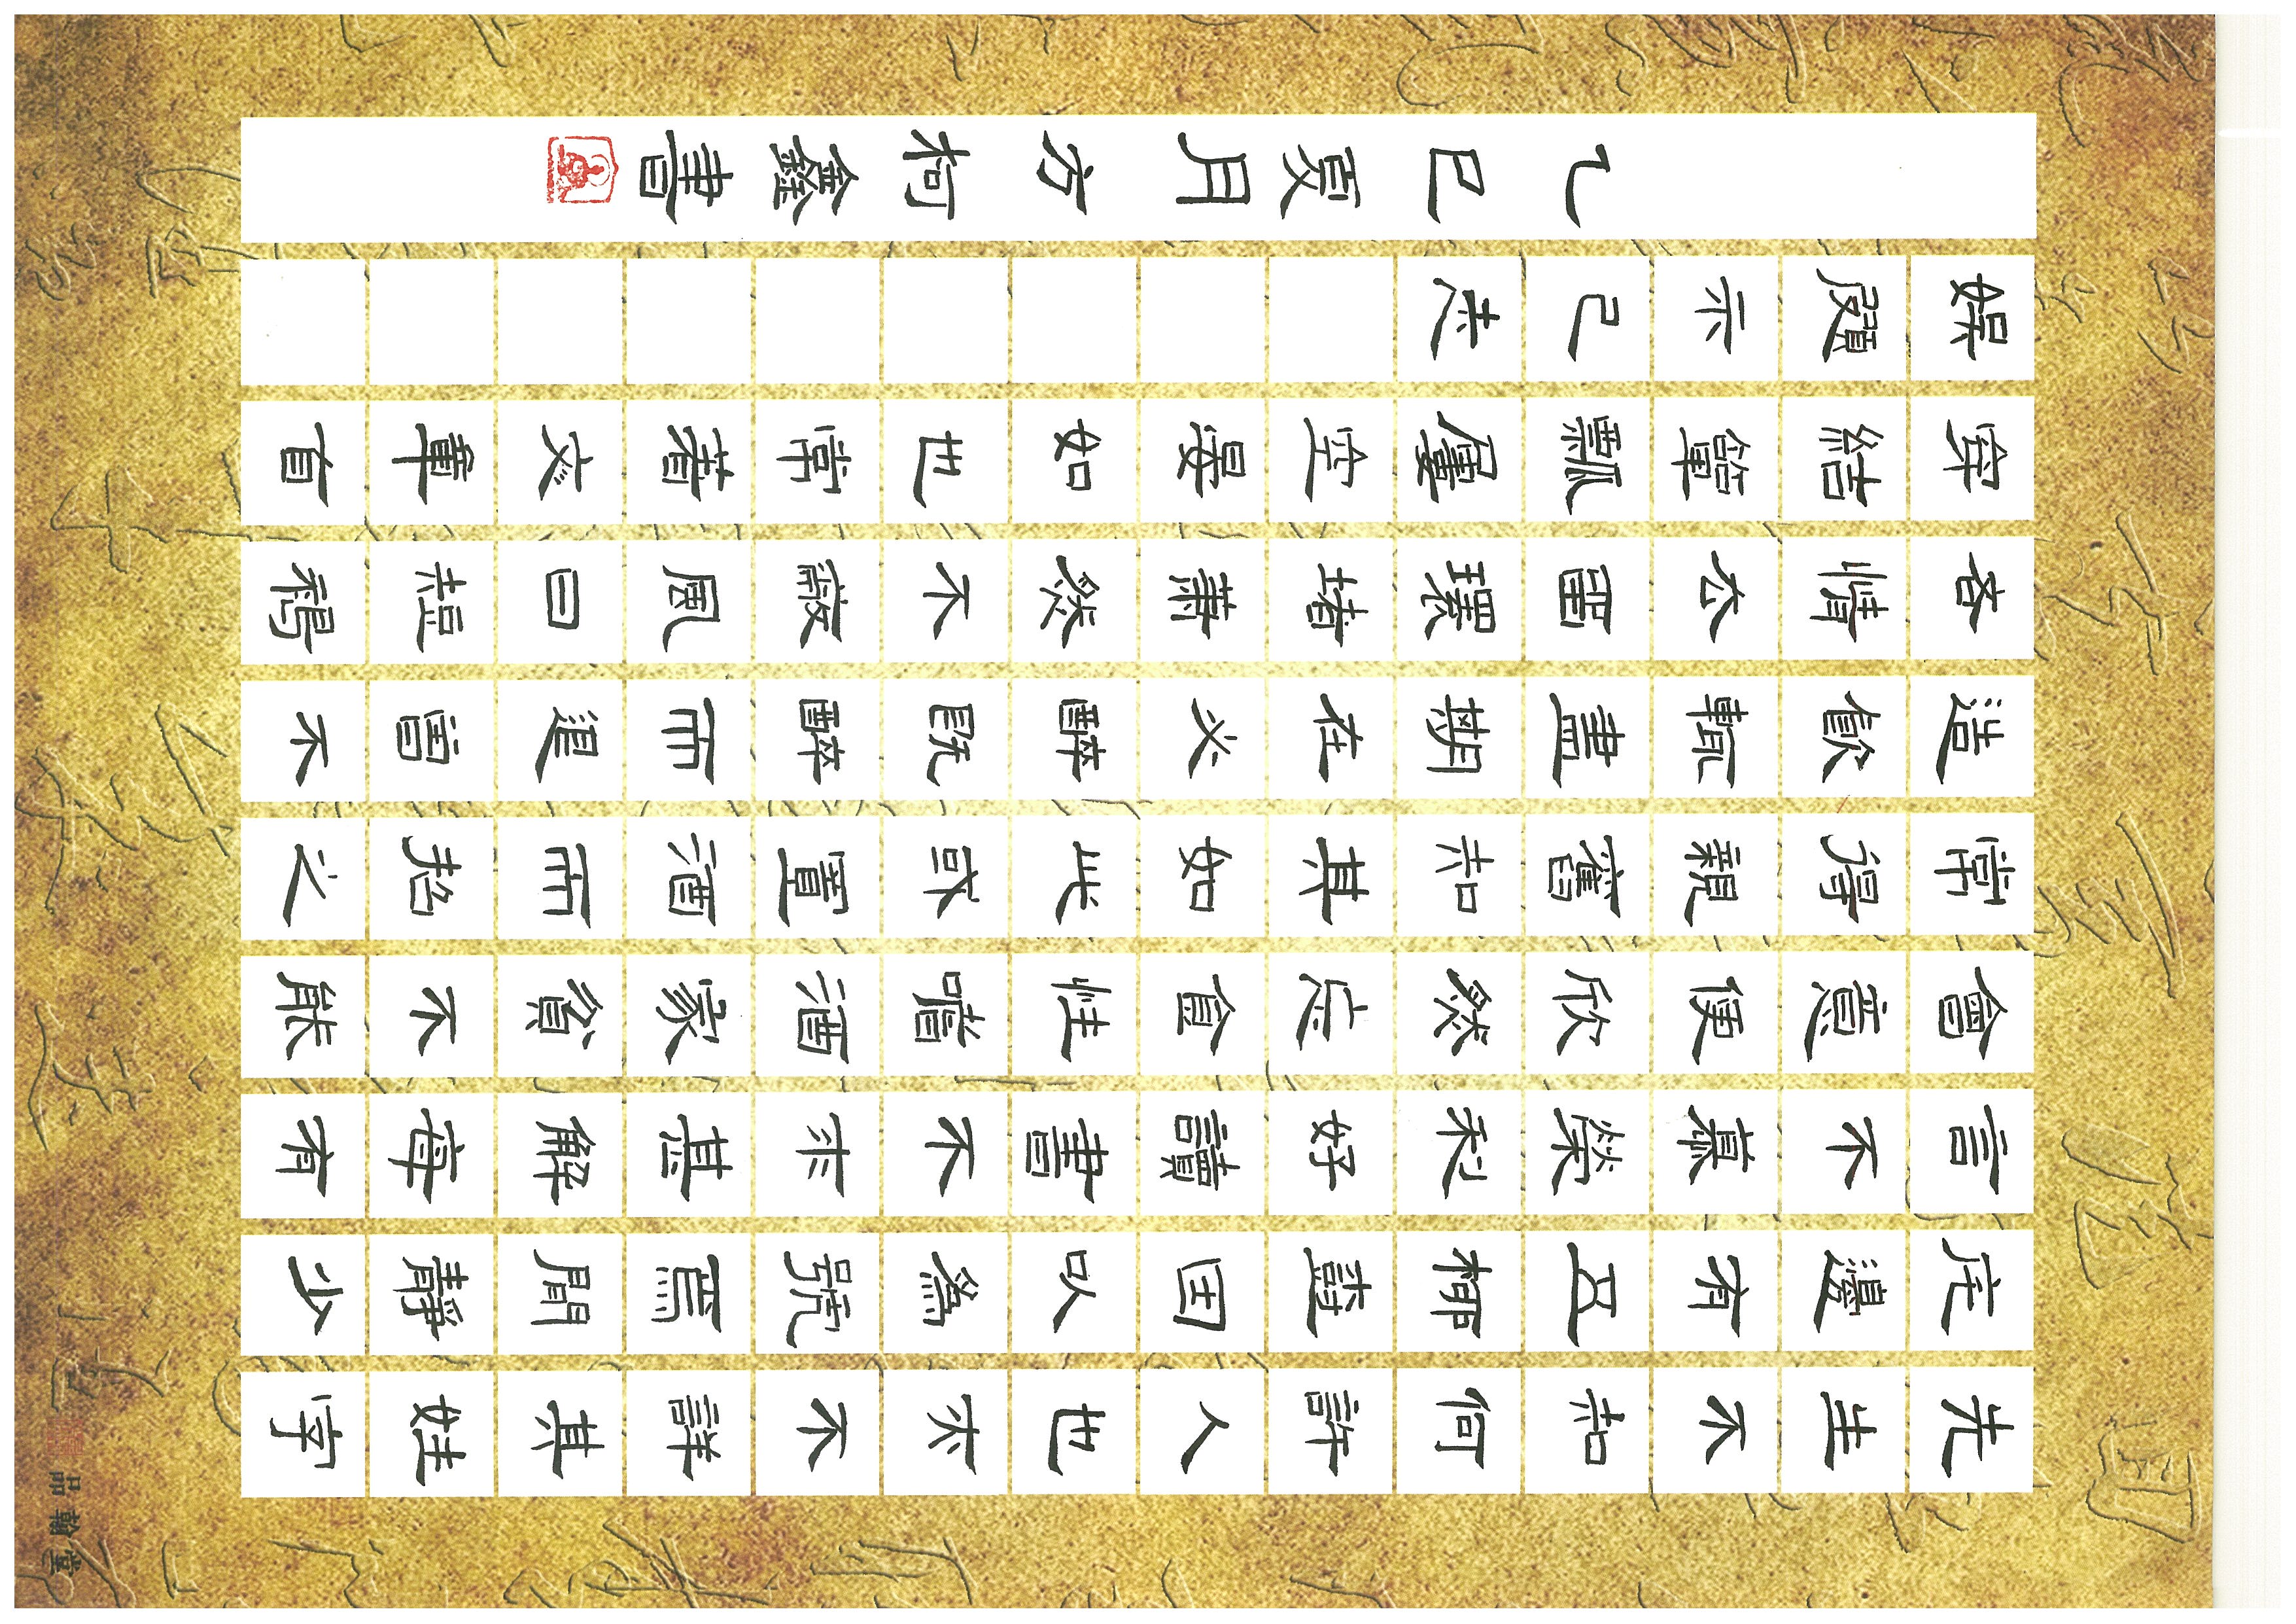 先生不知何許人也亦不詳其姓字
宅邊有五柳樹因以為號焉閒靜少
言不慕榮利好讀書不求甚解每有
會意便欣然忘食性嗜酒家貧不能
常得親舊知其如此或置酒而招之
造飲輒盡期在必醉既醉而退曾不
吝情去留環堵蕭然不蔽風日短褐
穿結簞瓢屢空晏如也常著文章自
娛頗示己志
乙巳夏月方柯鑫書
品翰堂